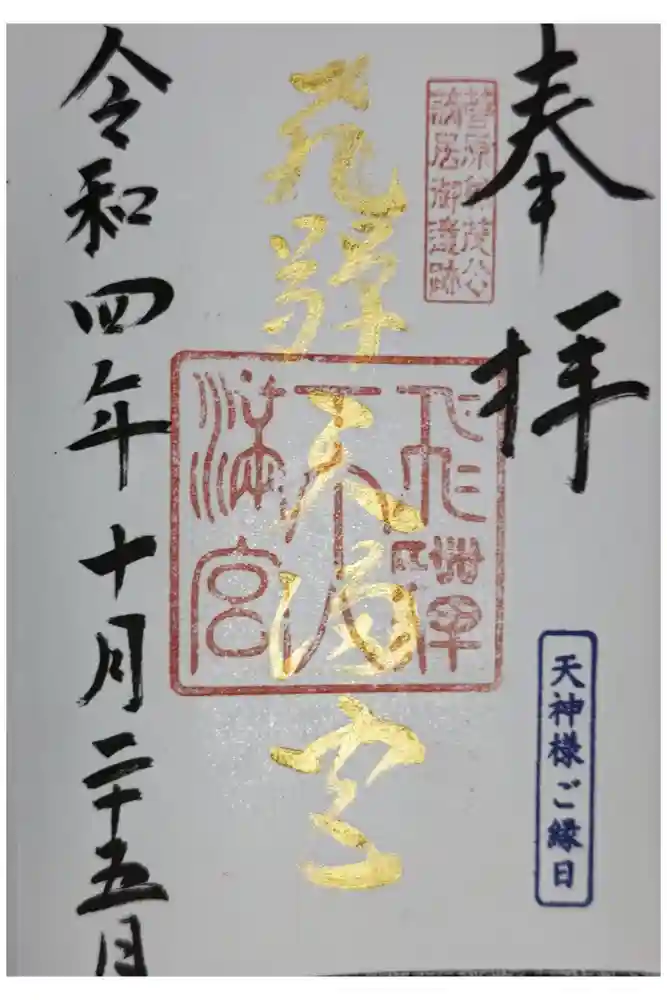 奉拝
菅原兼茂公
謫居御遺跡
天神様ご縁日
飛騨天満宮
飛騨
天
満宮
令和四年十月二十五日